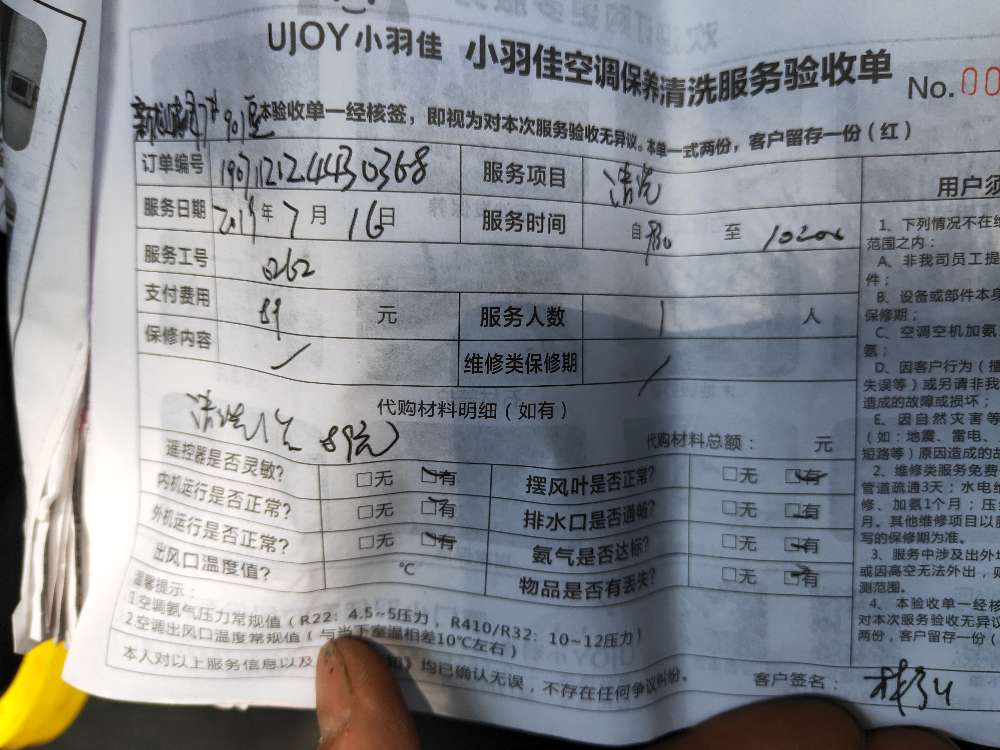 UJOY小羽佳 小羽佳空调保养清洗服务验收单
No.00
本验收单一经核签，即视为对本次服务验收无异议。本单一式两份，客户留存一份（红）
订单编号 服务项目 清洗
服务日期 2019年7月16日 服务时间 自 至
服务工号 0262
支付费用 89 元 服务人数 1 人
保修内容 / 维修类保修期 /
代购材料明细（如有）
清洗1台 89元
代购材料总额： 元
遥控器是否灵敏？ □无 □有 摆风叶是否正常？ □无 □有
内机运行是否正常？ □无 □有 排水口是否通畅？ □无 □有
外机运行是否正常？ □无 □有 氨气是否达标？ □无 □有
出风口温度值？ ℃ 物品是否有丢失？ □无 □有
温馨提示：
1.空调氨气压力常规值（R22：4.5~5压力，R410/R32：10~12压力）
2.空调出风口温度常规值（与当下室温相差10℃左右）
本人对以上服务信息以及 》均已确认无误，不存在任何争议纠纷。
客户签名：
用户须
1、下列情况不在
范围之内：
A、非我司员工提
件；
B、设备或部件本身
保修期；
C、空调空机加
氨；
D、因客户行为（
失误等）或另请非我
造成的故障或损坏；
E、因自然灾害等
（如：地震、雷电、
短路等）原因造成的故
2、维修类服务免费
管道疏通3天；水电维
修、加氨1个月；压
月。其他维修项目以
写的保修期为准。
3、服务中涉及出外
或因高空无法外出，则
测范围。
4、本验收单一经核
对本次服务验收无异议
两份，客户留存一份（